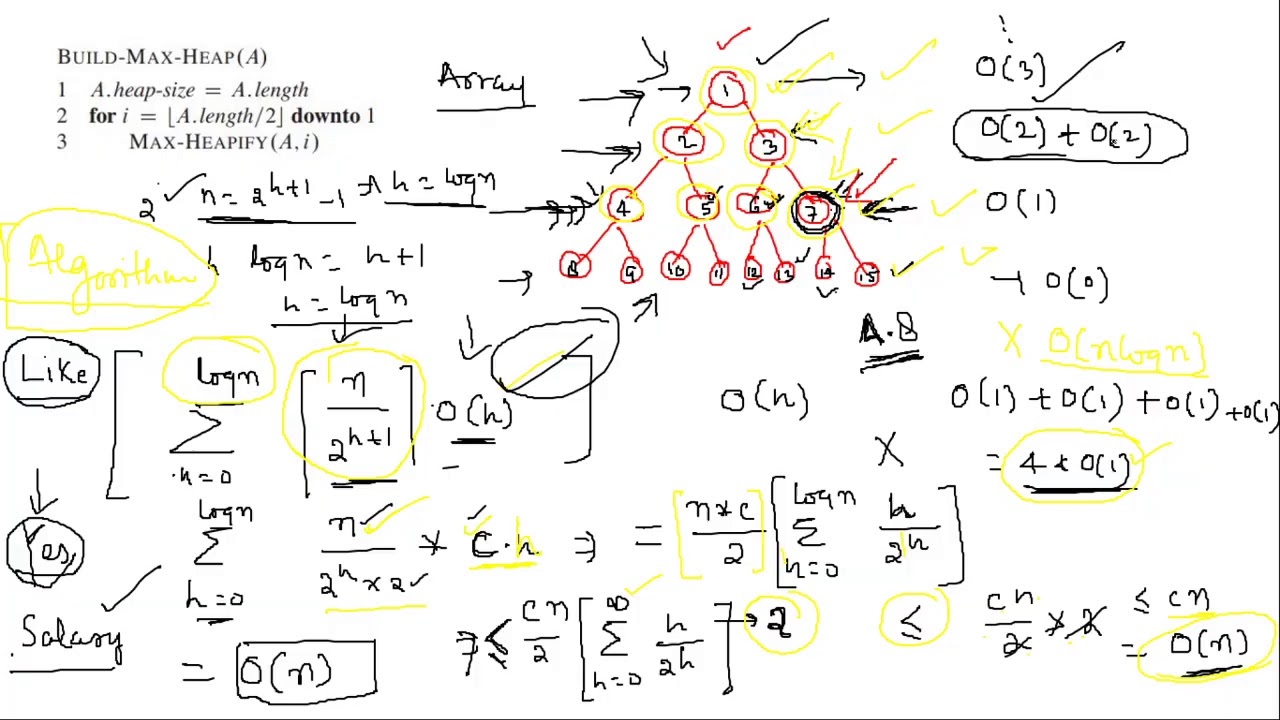 BUILD-MAX-HEAP(A)
1 A.heap-size = A.length
2 for i = ⌊A.length/2⌋ downto 1
3 MAX-HEAPIFY(A, i)
Array
1
2 3
4 5 6 7
8 9 10 11 12 13 14 15
O(3)
O(2) + O(2)
O(1)
O(0)
2
n = 2^{h+1} - 1 → h = logn
logn = h+1
h = logn
Algorithm
A.8
X O(nlogn)
Like
[ \sum_{h=0}^{logn} ⌈ n / 2^{h+1} ⌉ · O(h) ]
O(h)
O(1) + O(1) + O(1) + O(1)
X
= 4 * O(1)
Yes,
\sum_{h=0}^{logn} n / 2^h × 2 * C·h ⇒ = n*c / 2 [ \sum_{h=0}^{logn} h / 2^h ]
Salary
⇒ ≤ cn / 2 [ \sum_{h=0}^{∞} h / 2^h ] → 2 ≤ cn / 2 * 2 ≤ cn
= O(n)
= O(n)